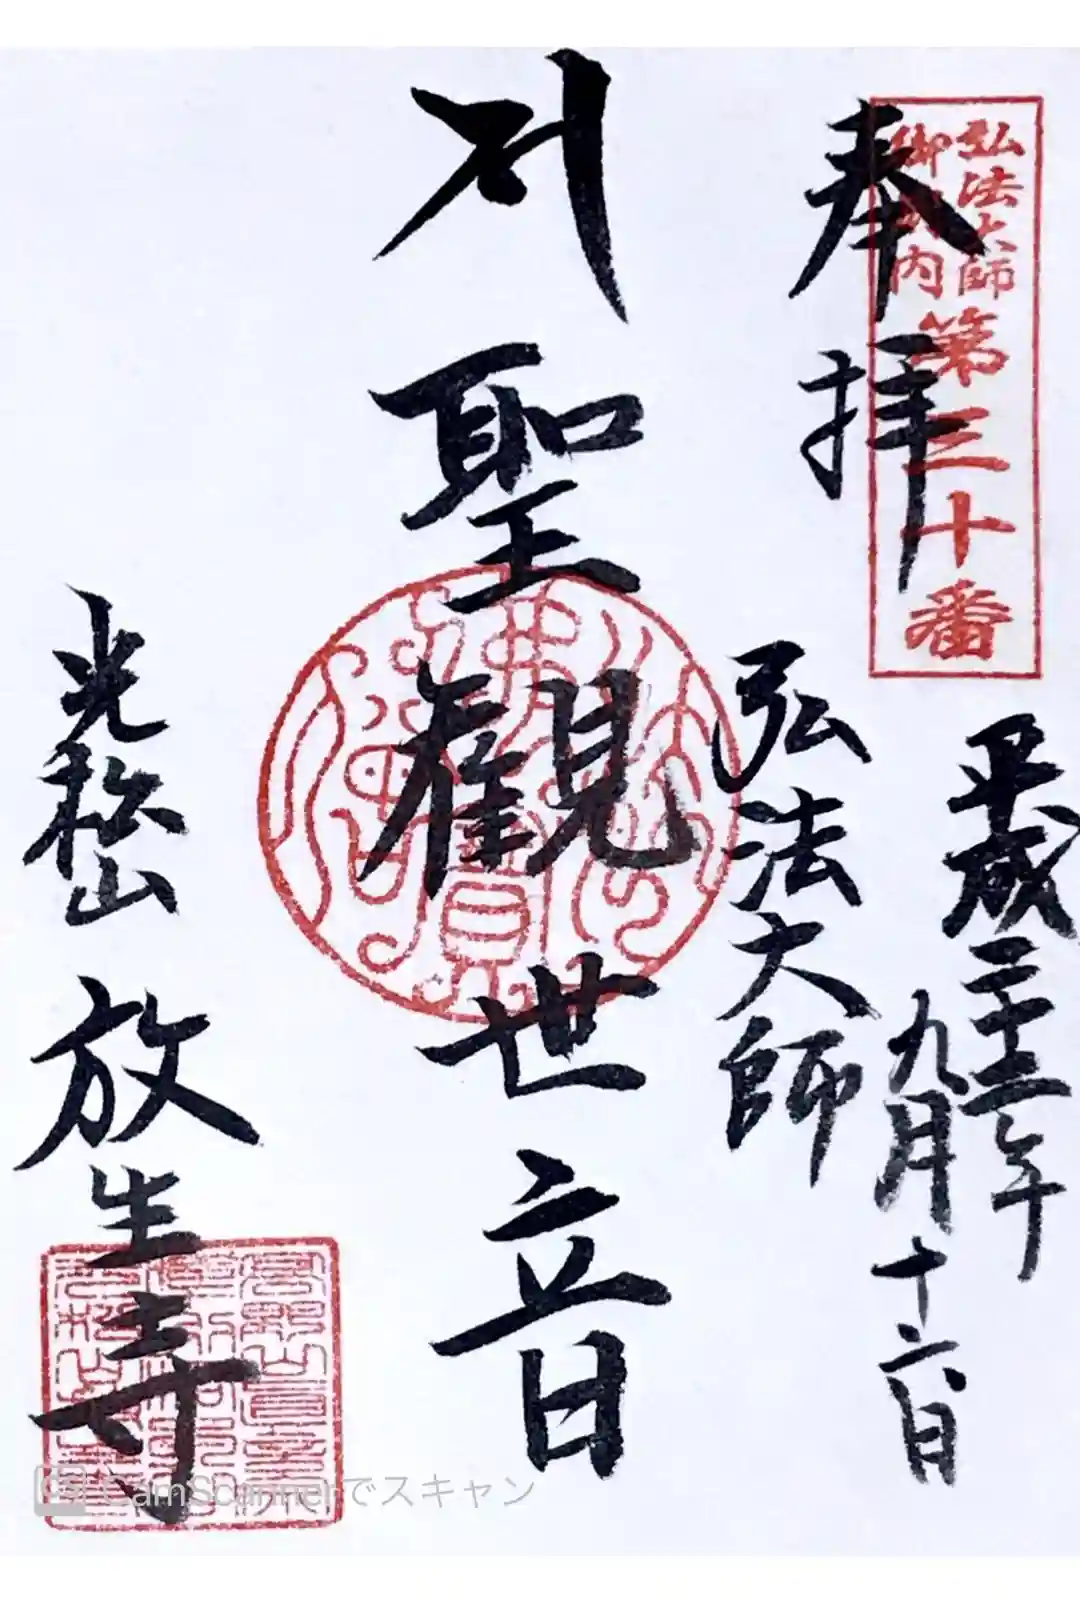 奉拝
弘法大師
御府内
第三十番
平成二十三年
九月十六日
弘法大師
聖観世音
光松山
放生寺
CamScannerでスキャン